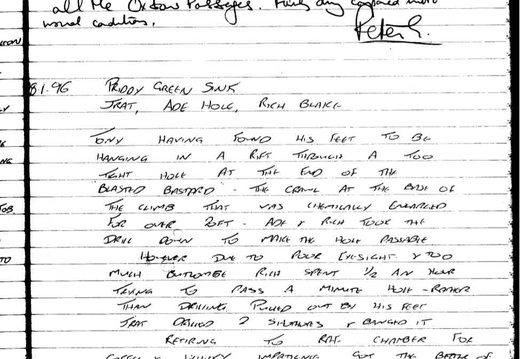 all the Oxbow Passages. Fairly dry compared
usual conditions.
Peter G.
8.1.96 PRIDDY GREEN SINK
JRAT, ADE HOLE, RICH BLAKE
TONY HAVING FOUND HIS FEET TO BE
HANGING IN A RIFT THROUGH A TOO
TIGHT HOLE AT THE END OF THE
BLASTED BASTARD - THE CRAWL AT THE BASE OF
THE CLIMB THAT WAS CHEMICALLY ENLARGED
FOR OVER 20FT - ADE & RICH TOOK THE
DRILL DOWN TO MAKE THE HOLE PASSABLE
HOWEVER DUE TO POOR EYESIGHT & TOO
MUCH RICH SPENT 1/2 AN HOUR
TRYING TO PASS A MINUTE HOLE - RATHER
THAN DRILLING PULLED OUT BY HIS FEET
JRAT DRILLED 2 SHOTHOLES & BANGED IT
RETIRING TO RAT CHAMBER FOR
COFFEE & IMPATIENCE GOT THE BETTER OF